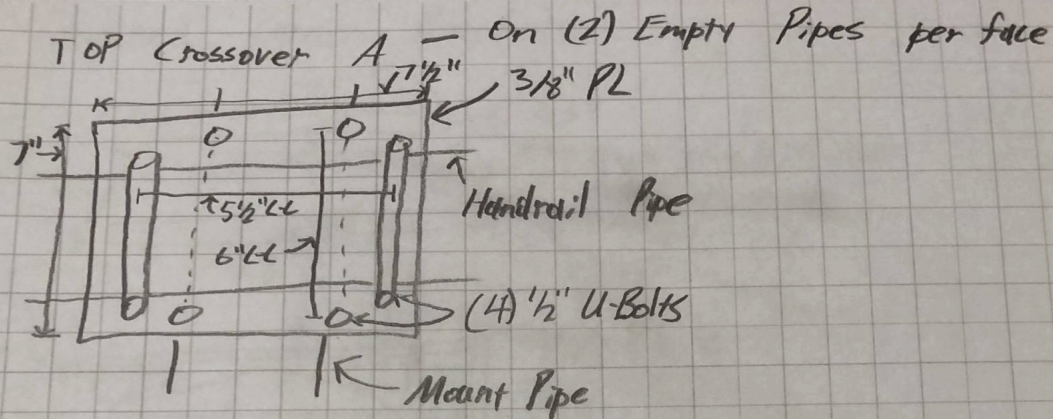 TOP Crossover A — On (2) Empty Pipes per face
7½"
3/8" PL
7"
Handrail Pipe
5½" CC
6" CC
(4) ½" U-Bolts
Mount Pipe